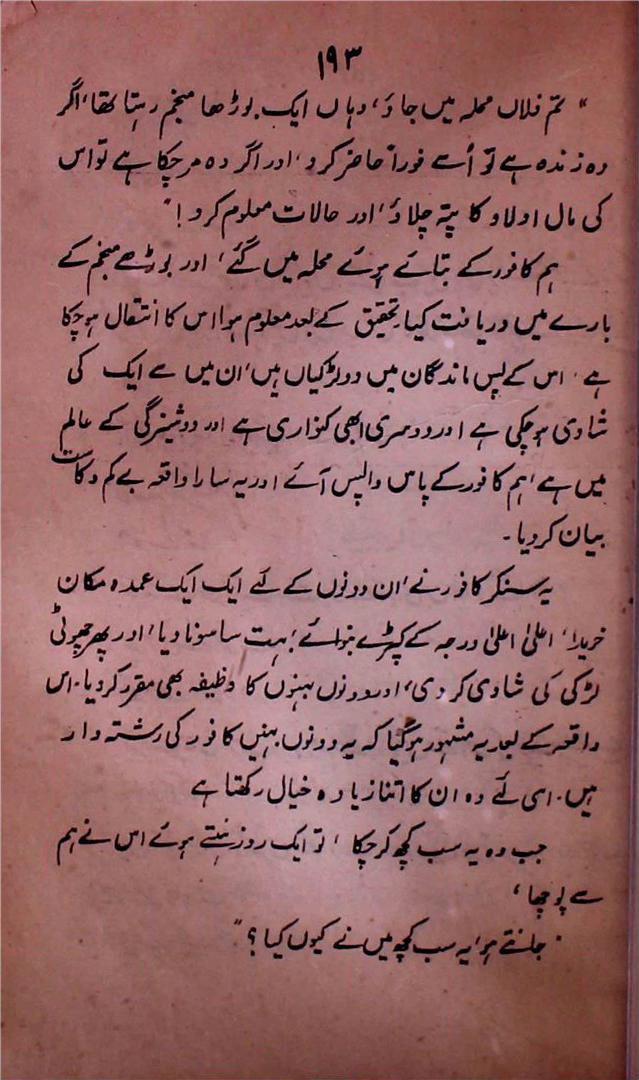 ۱۹۳
" تم فلاں محلہ میں جاؤ، وہاں ایک بوڑھا منجم رہتا تھا، اگر
وہ زندہ ہے تو اُسے فوراً حاضر کرو، اور اگر وہ مرچکا ہے تو اس
کی مال اولاد کا پتہ چلاؤ، اور حالات معلوم کرو!"
ہم کافور کے بتائے ہوئے محلہ میں گئے، اور بوڑھے منجم کے
بارے میں دریافت کیا، تحقیق کے بعد معلوم ہوا اس کا انتقال ہوچکا
ہے، اس کے پس ماندگان میں دو لڑکیاں ہیں، ان میں سے ایک کی
شادی ہوچکی ہے اور دوسری ابھی کنواری ہے اور دوشیزگی کے عالم
میں ہے، ہم کافور کے پاس واپس آئے اور یہ سارا واقعہ بے کم و کاست
بیان کردیا۔
یہ سنکر کافور نے، ان دونوں کے لئے ایک ایک عمدہ مکان
خریدا، اعلیٰ اعلیٰ درجہ کے کپڑے بنوائے، بہت سا سونا دیا، اور پھر چھوٹی
لڑکی کی شادی کردی، اور دونوں بہنوں کا وظیفہ بھی مقرر کردیا۔ اس
واقعہ کے بعد یہ مشہور ہوگیا کہ یہ دونوں بہنیں کافور کی رشتہ دار
ہیں۔ اسی لئے وہ ان کا اتنا زیادہ خیال رکھتا ہے
جب وہ یہ سب کچھ کرچکا، تو ایک روز ہنستے ہوئے اس نے ہم
سے پوچھا،
" جانتے ہو، یہ سب کچھ میں نے کیوں کیا؟"